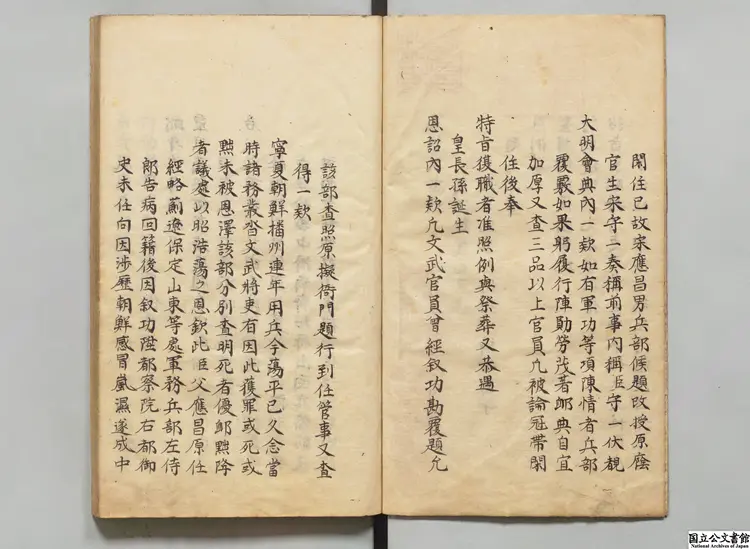 閑住已故宋應昌男兵部候題改授原廕
官生宋守一奏稱前事內稱臣守一伏覩
大明會典內一款如有軍功等項陳情者兵部
覆覈如果躬履行陣勛勞茂著卹典自宜
加厚又查三品以上官員凢被論冠帶閑
住後奉
特旨復職者准照例與祭葬又恭遇
皇長孫誕生
恩詔內一款凢文武官員曾經叙功勘覆題允
該部查照原擬衙門題行到任管事又查
得一款
寧夏朝鮮播州連年用兵今蕩平已久念當
時諸務叢沓文武將吏有因此獲罪或死或
黜未被恩澤該部分別查明死者優卹黜降
者議處以昭浩蕩之恩欽此臣父應昌原任
經略薊遼保定山東等處軍務兵部左侍
郎告病回籍後因叙功陞都察院右都御
史未任向因涉歷朝鮮感冒嵐濕遂成中
国立公文書館
National Archives of Japan